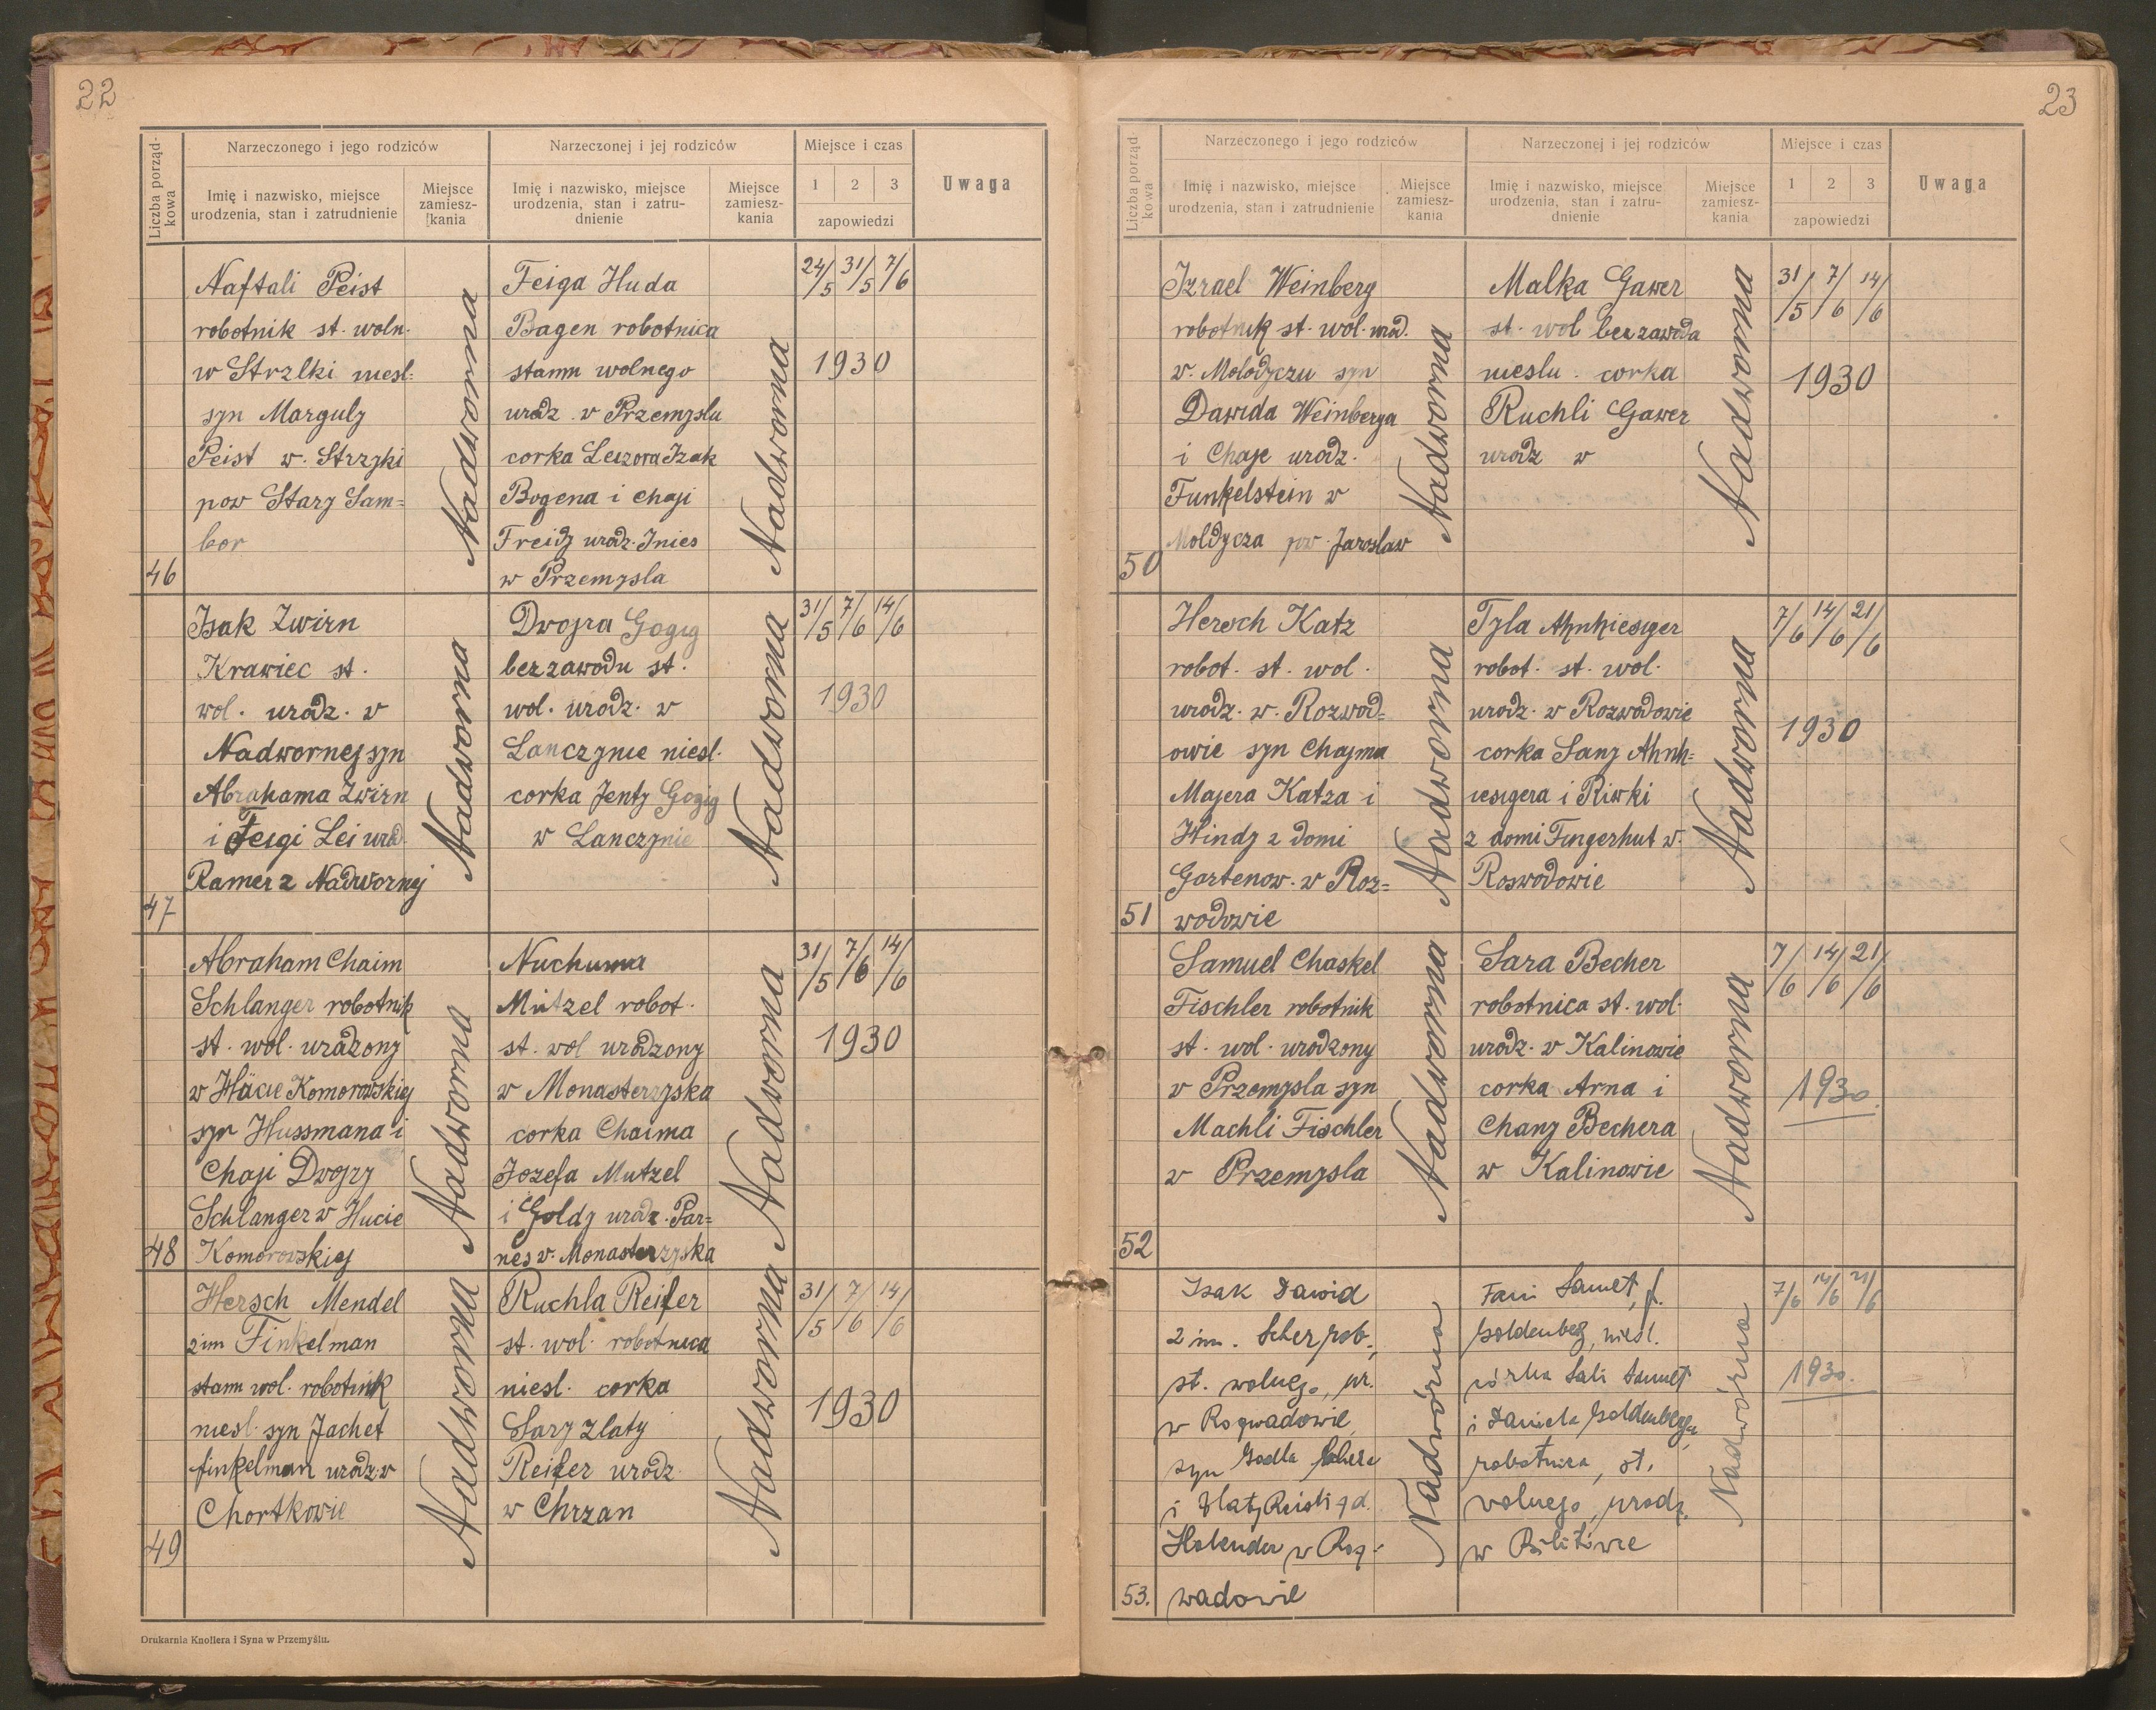 22
Liczba porząd-
kowa
Narzeczonego i jego rodziców
Narzeczonej i jej rodziców
Miejsce i czas
Uwaga
Imię i nazwisko, miejsce
urodzenia, stan i zatrudnienie
Miejsce
zamiesz-
kania
Imię i nazwisko, miejsce
urodzenia, stan i zatru-
dnienie
Miejsce
zamiesz-
kania
1 2 3
zapowiedzi
46
Naftali Peist
robotnik st. woln.
w Strzlki niesl.
syn Marguly
Peist w. Strzyki
pow Stary Sam=
bor
Nadworna
Feiga Huda
Bagen robotnica
stanu wolnego
urodz. w Przemyslu
corka Leizora Izak
Bogena i Chaji
Freidy urodz. Inies
w Przemysla
Nadworna
24/5 31/5 7/6
1930
47
Isak Zwirn
Krawiec st.
wol. urodz. w
Nadwornej syn
Abrahama Zwirn
i Feigi Lei urod.
Ramer z Nadwornej
Nadworna
Dwojra Gogig
bez zawodu st.
wol. urodz. w
Lanczynie niesl.
corka Jenty Gogig
w Lanczynie
Nadworna
31/5 7/6 14/6
1930
48
Abraham Chaim
Schlanger robotnik
st. wol. urodzony
w Hucie Komorowskiej
syn Hussmana i
Chaji Dwojry
Schlanger w Hucie
Komorowskiej
Nadworna
Nuchuma
Mutzel robot.
st. wol urodzony
w Monasterzyska
corka Chaima
Jozefa Mutzel
i Goldy urodz. Par=
nes w. Monasterzyska
Nadworna
31/5 7/6 14/6
1930
49
Hersch Mendel
2im Finkelman
stanu wol. robotnik
niesl. syn Jachet
finkelman urodz. w
Chortkowie
Nadworna
Ruchla Reifer
st. wol. robotnica
niesl. corka
Sary Zlaty
Reifer urodz.
w Chrzan
Nadworna
31/5 7/6 14/6
1930
Drukarnia Knollera i Syna w Przemyślu.
23
Liczba porząd-
kowa
Narzeczonego i jego rodziców
Narzeczonej i jej rodziców
Miejsce i czas
Uwaga
Imię i nazwisko, miejsce
urodzenia, stan i zatrudnienie
Miejsce
zamiesz-
kania
Imię i nazwisko, miejsce
urodzenia, stan i zatru-
dnienie
Miejsce
zamiesz-
kania
1 2 3
zapowiedzi
50
Izrael Weinberg
robotnik st. wol. urod.
w. Molodyczu syn
Dawida Weinberga
i Chaje urodz.
Funkelstein w
Moldycza pow. Jaroslaw
Nadworna
Malka Gawer
st. wol bez zawoda
nieslu. corka
Ruchli Gawer
urodz w
Nadworna
31/5 7/6 14/6
1930
51
Hersch Katz
robot. st. wol.
urodz. w. Rozwod=
owie syn Chajma
Majera Katza i
Hindy z domi
Gartenow. w Roz=
wodowie
Nadworna
Tyla Ahnhiesiger
robot. st. wol.
urodz. w Rozwodowie
corka Sany Ahnh=
iesigera i Riwki
z domi Fingerhut w.
Roswodowie
Nadworna
7/6 14/6 21/6
1930
52
Samuel Chaskel
Fischler robotnik
st. wol. urodzony
w Przemysla syn
Machli Fischler
w Przemysla
Nadworna
Sara Becher
robotnica st. wol.
urodz. w Kalinowie
corka Arna i
Chany Bechera
w Kalinowie
Nadworna
7/6 14/6 21/6
1930.
53.
Isak Dawid
2 im. Scher rob.,
st. wolnego, ur.
w Rozwadowie,
syn Godla Schera
i Zlaty Reisli z d.
Holender w Roz-
wadowie
Nadwórna
Fani Samet, f.
Goldenberg, niesl.
córka Sali Samet
i Daniela Goldenberga,
robotnica, st.
wolnego, urodz.
w
Nadwórna
7/6 14/6 21/6
1930.